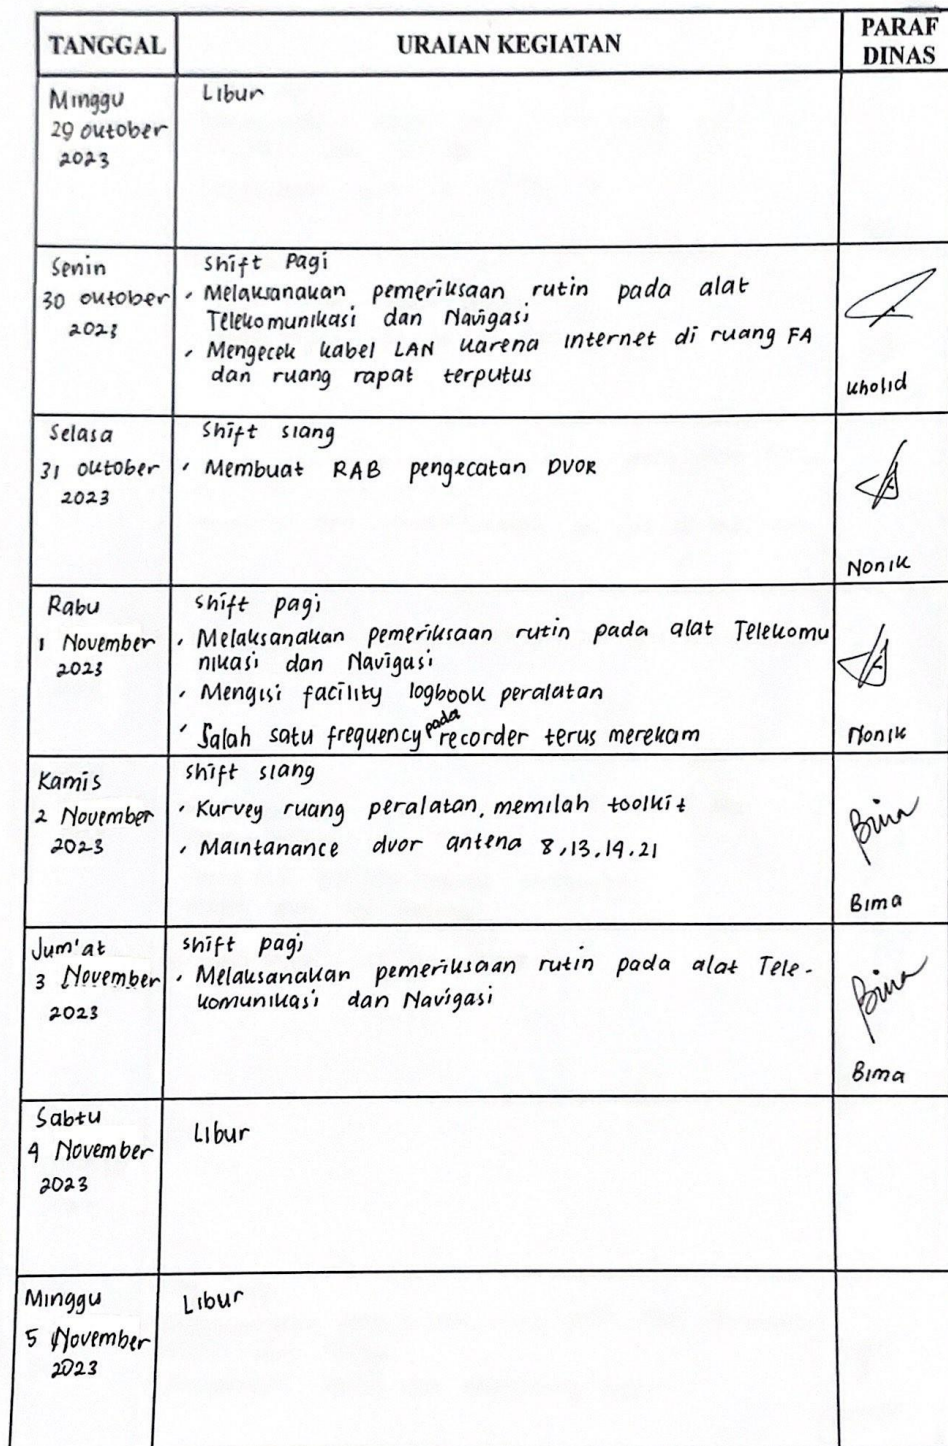 TANGGAL
URAIAN KEGIATAN
PARAF
DINAS
Minggu
29 Oktober
2023
Libur
Senin
30 Oktober
2023
Shift Pagi
Melaksanakan pemeriksaan rutin pada alat
Telekomunikasi dan Navigasi
Mengecek kabel LAN karena internet di ruang FA
dan ruang rapat terputus
Kholid
Selasa
31 Oktober
2023
Shift siang
Membuat RAB pengecatan DVOR
Nonik
Rabu
1 November
2023
Shift pagi
Melaksanakan pemeriksaan rutin pada alat Telekomu
nikasi dan Navigasi
Mengisi facility logbook peralatan
Salah satu frequency pada recorder terus merekam
Nonik
Kamis
2 November
2023
Shift siang
Kurvey ruang peralatan, memilah toolkit
Maintanance dvor antena 8,13,14,21
Bima
Bima
Jum'at
3 November
2023
Shift pagi
Melaksanakan pemeriksaan rutin pada alat Tele-
komunikasi dan Navigasi
Bima
Bima
Sabtu
4 November
2023
Libur
Minggu
5 November
2023
Libur